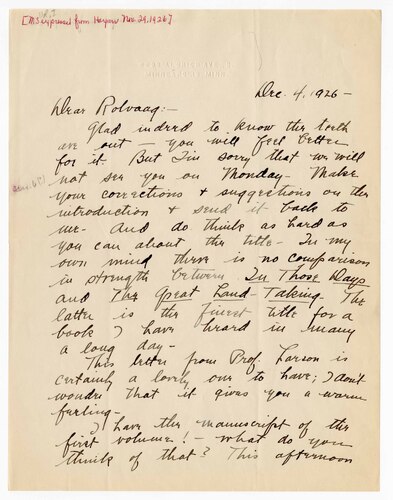 [MS expressed from Harper Nov. 29, 1926]
MINNEAPOLIS, MINN.
Dec. 4, 1926 -
Dear Rolvaag:-
Glad indeed to know the teeth
are out - you will feel better
for it. But I'm sorry that we will
not see you on Monday. Make
your corrections & suggestions on the
introduction & send it back to
me. And do think as hard as
you can about the title. In my
own mind there is no comparison
in strength between In Those Days
and The Great Land-Taking. The
latter is the finest title for a
book I have heard in many
a long day -
This letter from Prof. Larson is
certainly a lovely one to have; I don't
wonder that it gives you a warm
feeling -
I have the manuscript of the
first volume! - What do you
think of that? This afternoon